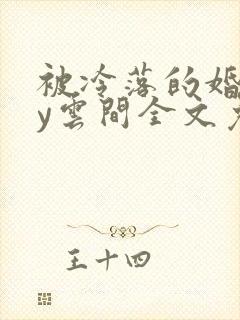 被冷落的婚
y雲間全文
王十四